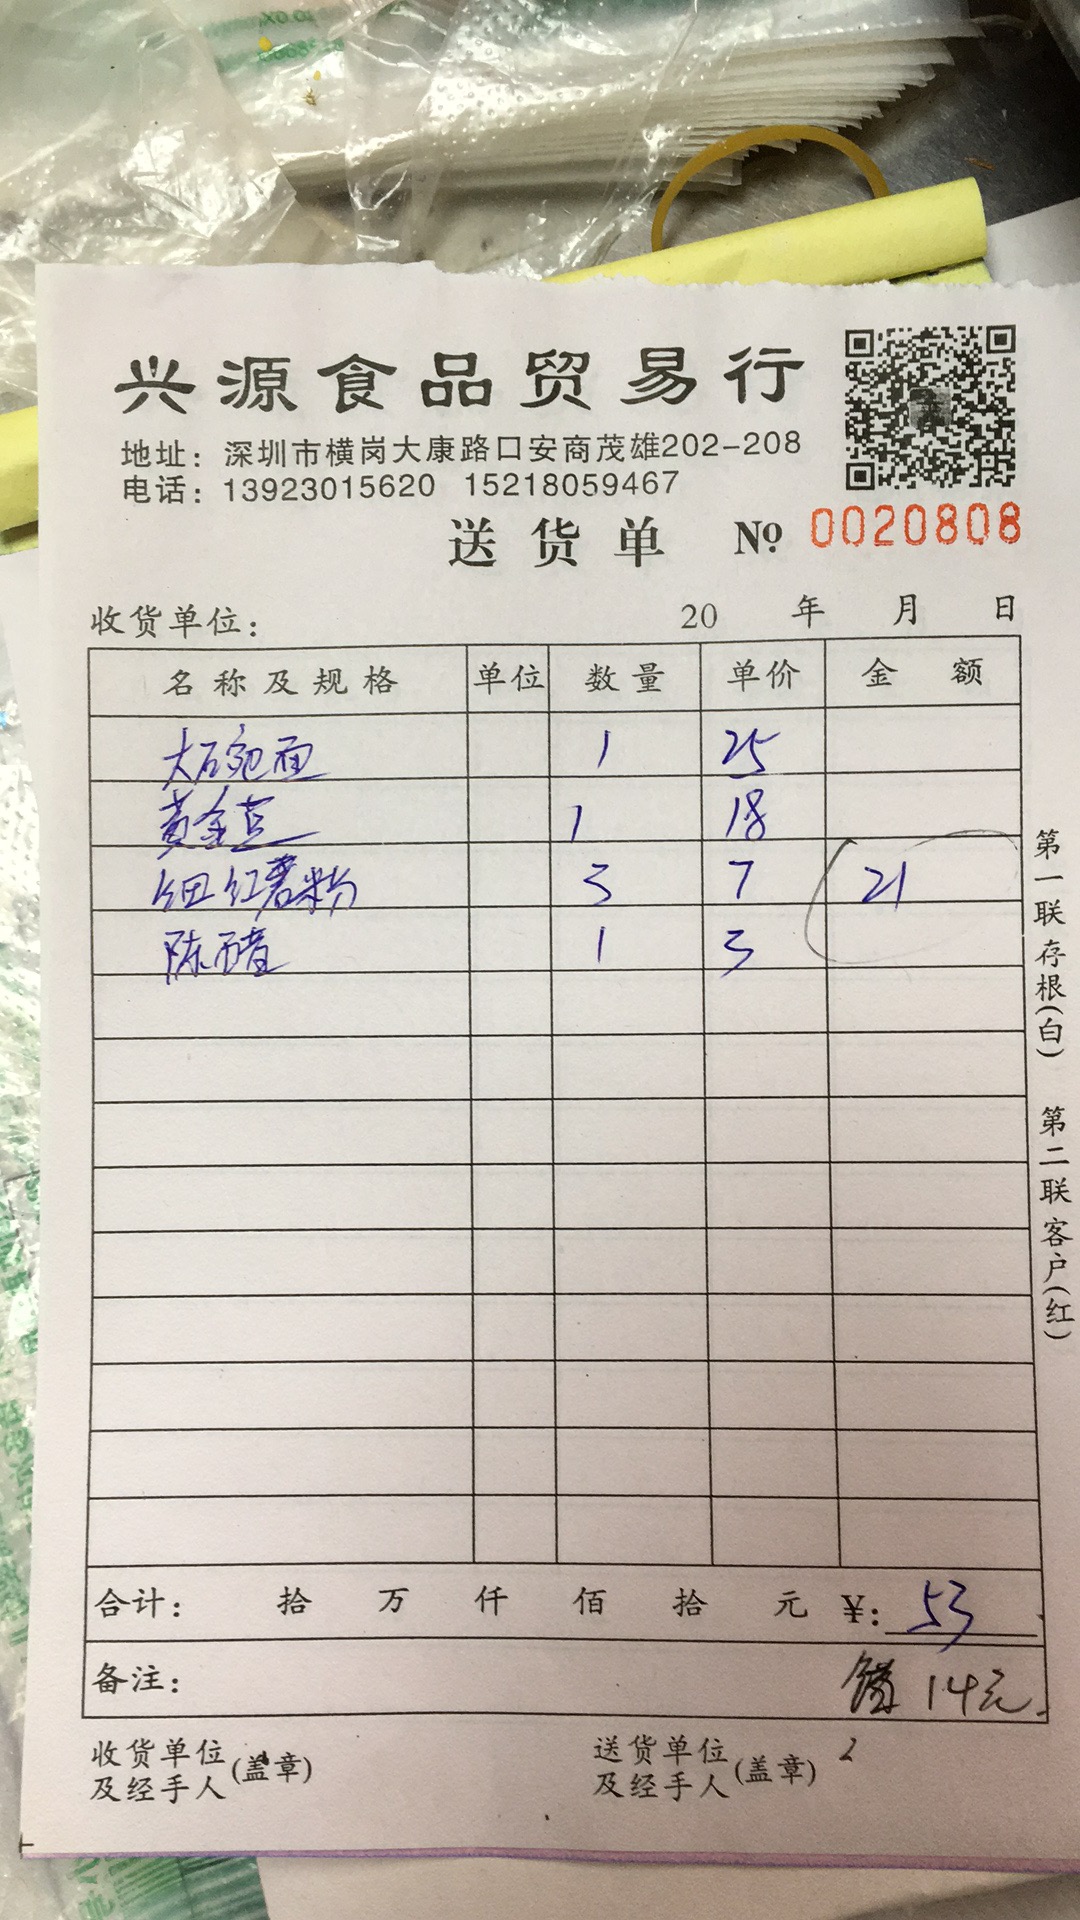 兴源食品贸易行
地址：深圳市横岗大康路口安商茂雄202-208
电话：13923015620 15218059467
送货单 № 0020808
收货单位： 20 年 月 日
名称及规格 单位 数量 单价 金额
大石碗面 1 25
黄金豆 1 18
细红薯粉 3 7 21
陈醋 1 3
合计： 拾 万 仟 佰 拾 元 ¥：53
备注： 错14元
收货单位及经手人（盖章） 送货单位及经手人（盖章） 2
第一联存根(白) 第二联客户(红)